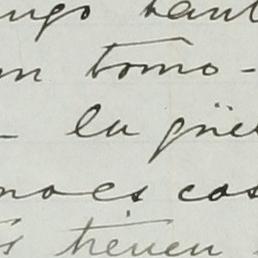 ngo tant
un tomo-
- la güe
moes cos
s tienen